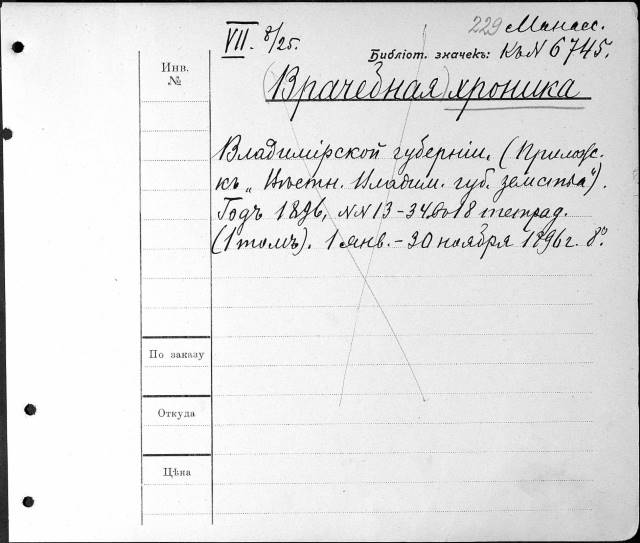 VII. 8/25.
229 Манасс.
Библіот. значекъ: Къ N 6745.
Инв.
№
(Врачебная) хроника
Владимірской губерніи. (Прилож.
къ „Вѣстн. Владим. губ. земства“).
Годъ 1896, NN 13-34 въ 18 тетрад.
(1 томъ). 1 янв. - 30 ноября 1896 г. 8°.
По заказу
Откуда
Цѣна